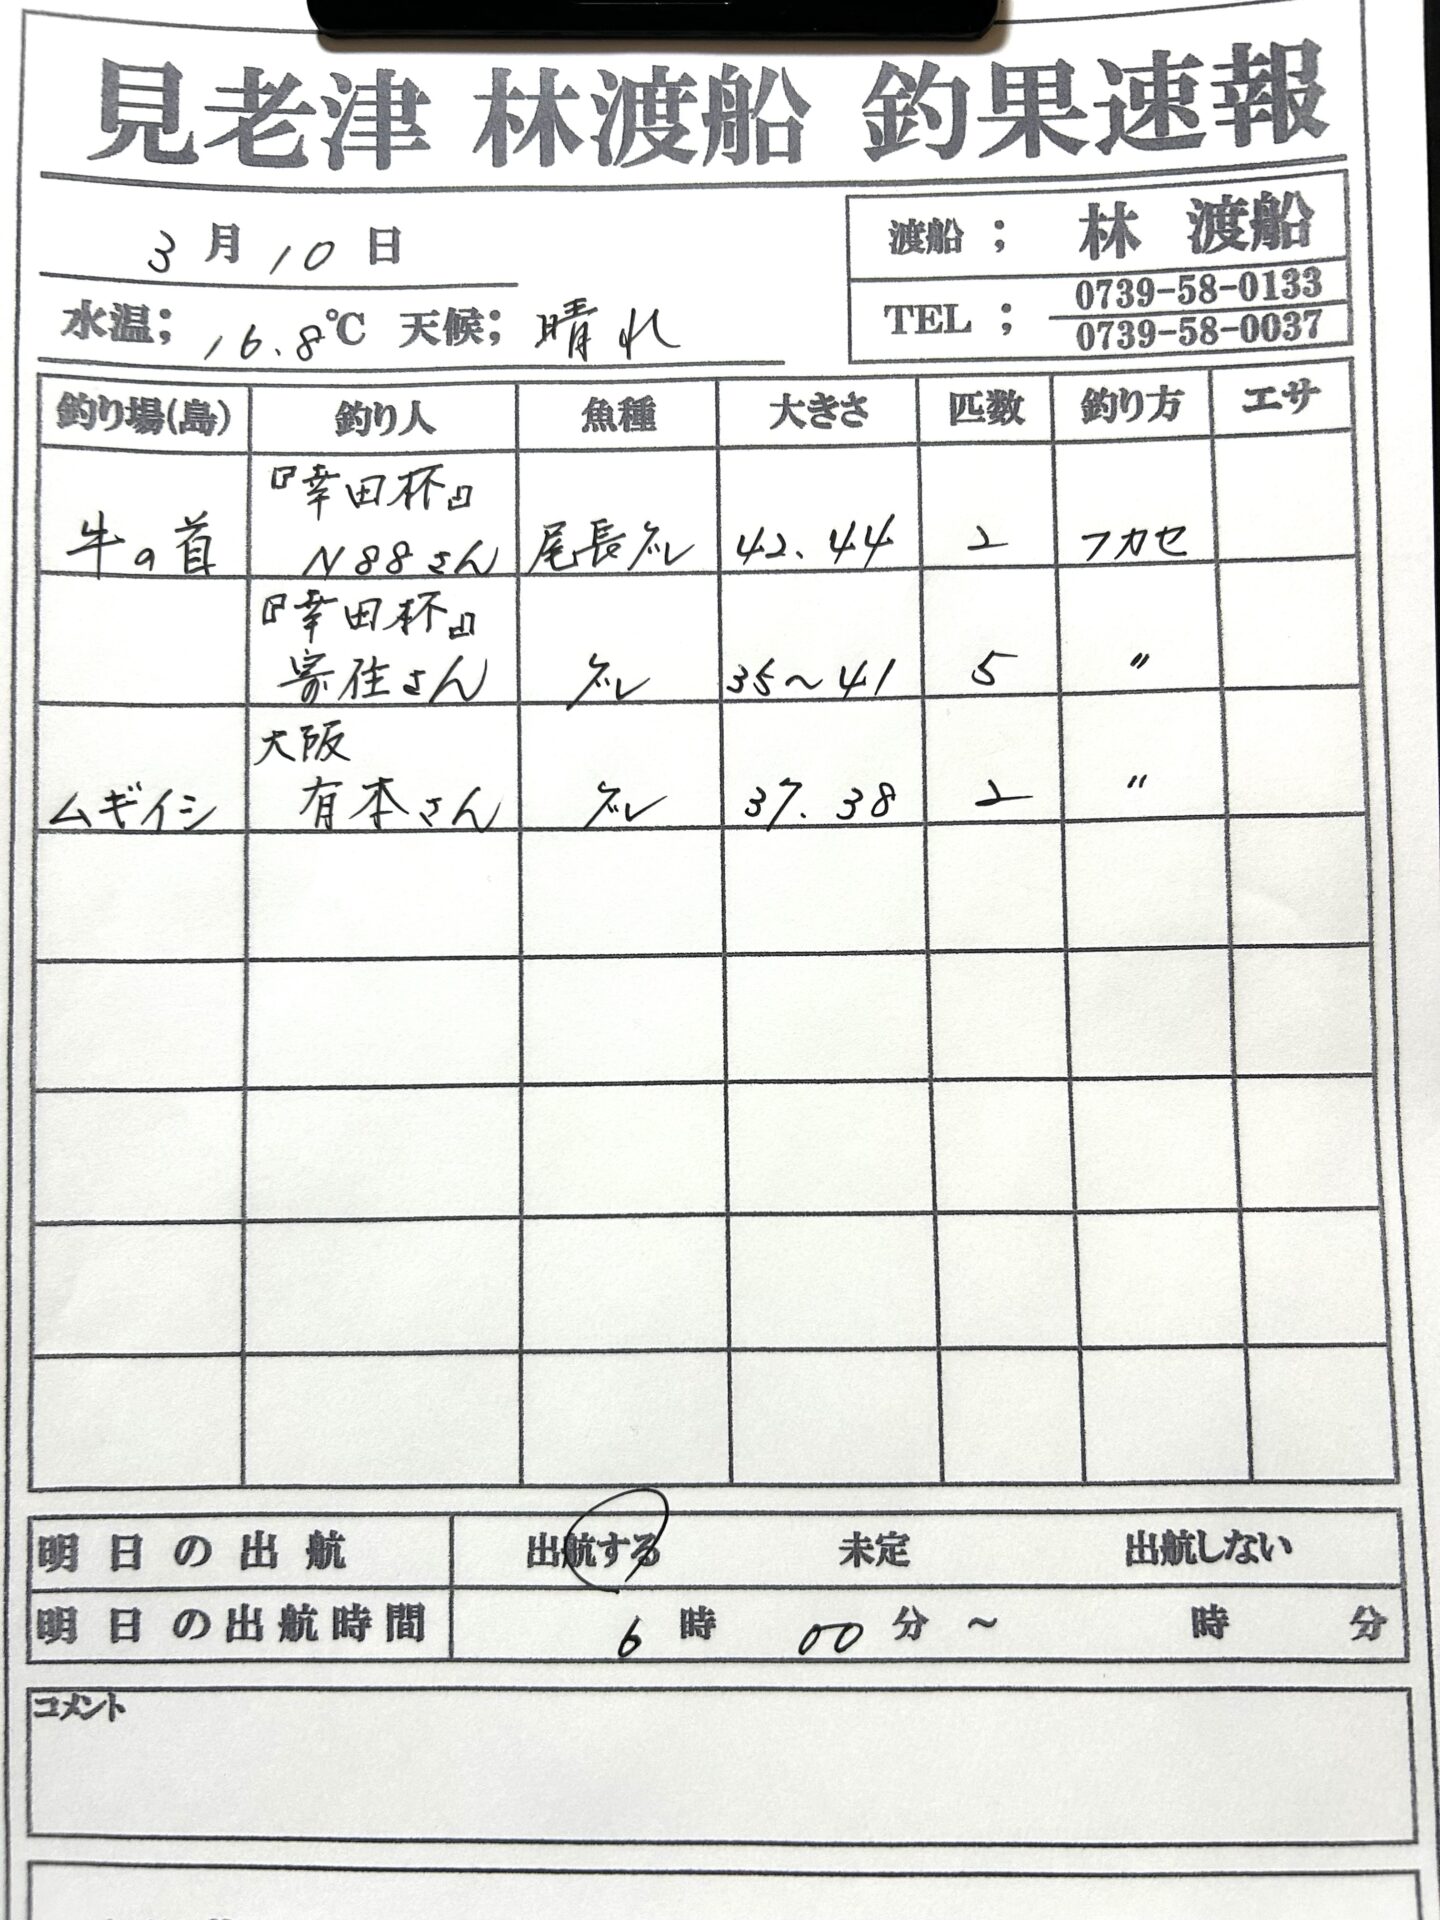 見老津 林渡船 釣果速報
3月10日
渡船 ; 林 渡船
水温; 16.8℃ 天候; 晴れ
TEL ; 0739-58-0133
0739-58-0037
釣り場(島) 釣り人 魚種 大きさ 匹数 釣り方 エサ
『幸田杯』
牛の首 N88さん 尾長グレ 42.44 2 フカセ
『幸田杯』
寄住さん グレ 35～41 5 〃
大阪
ムギイシ 有本さん グレ 37.38 2 〃
明日の出航 出航する 未定 出航しない
明日の出航時間 6時00分～ 時 分
コメント